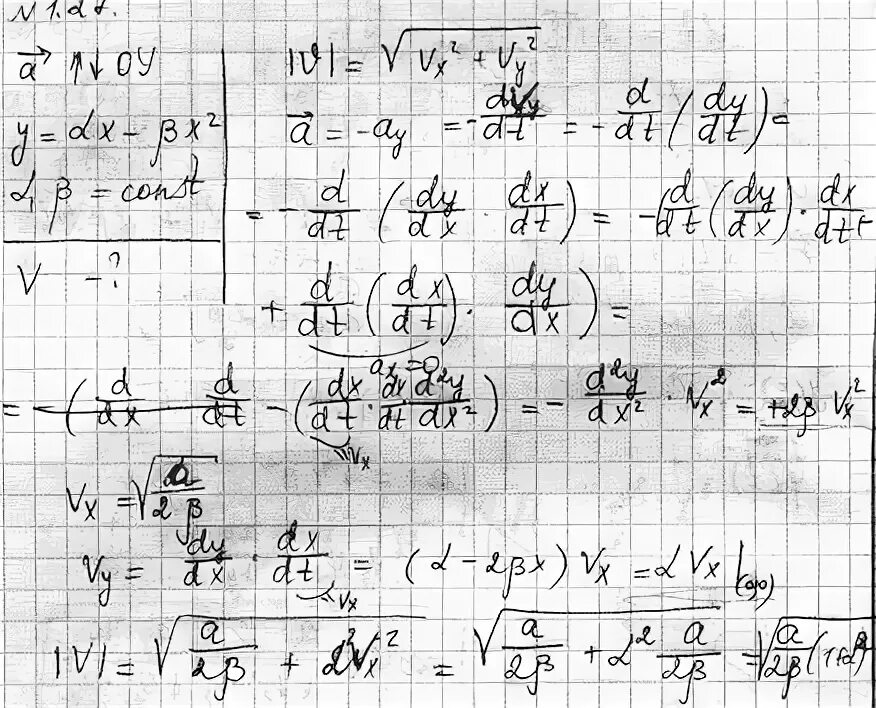 N 1.27.
a⃗ ↑↓ OY
y = αx − βx²
α, β = const
V − ?
|V| = √(Vx² + Vy²)
a⃗ = −ay = −dVy/dt = −d/dt (dy/dt) =
= −d/dt (dy/dx · dx/dt) = −(d/dt (dy/dx) · dx/dt +
+ d/dt (dx/dt) · dy/dx) =
ax = 0
= −(dx/dt · dx/dt d²y/dx²) = − d²y/dx² · Vx² = +2β Vx²
= Vx
Vx = √(a/2β)
Vy = dy/dx · dx/dt = (α − 2βx) Vx = α Vx |(0,0)
= Vx
|V| = √(a/2β + α²Vx²) = √(a/2β + α² a/2β) = √(a/2β (1+α²))